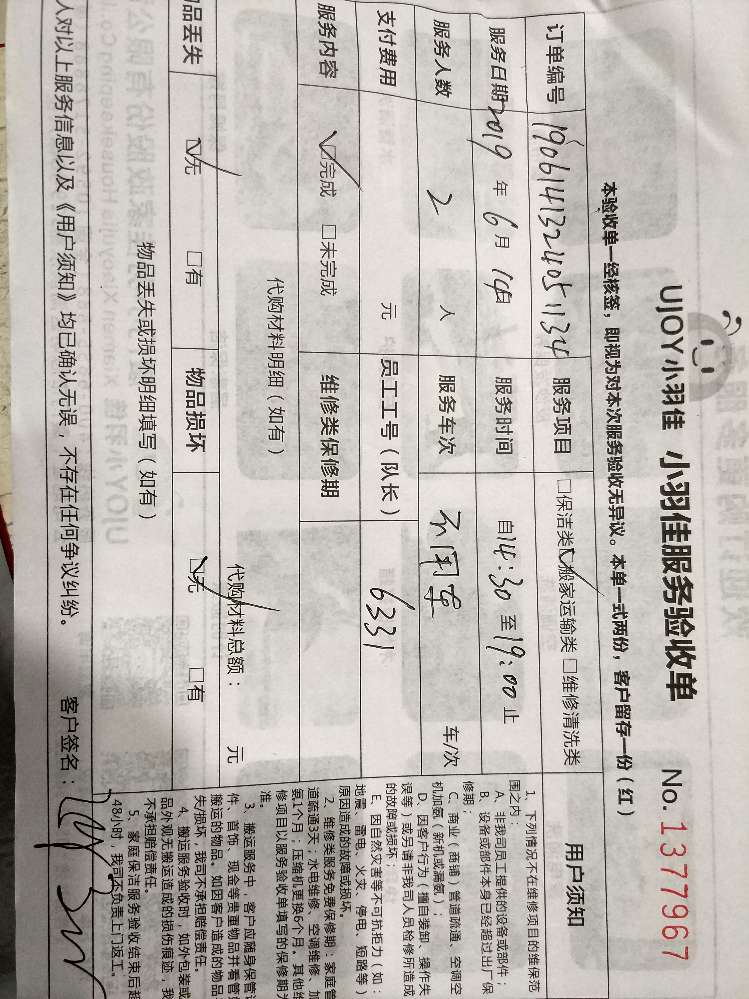 UJOY小羽佳 小羽佳服务验收单 No.1377967
本验收单一经核签，即视为对本次服务验收无异议。本单一式两份，客户留存一份（红）
订单编号 1906141324051134 服务项目 □保洁类 ☑搬家运输类 □维修清洗类
服务日期 2019 年 6 月 14日 服务时间 自14:30 至19:00 止
服务人数 2 人 服务车次 不用车 车/次
支付费用 元 员工工号（队长） 6331
服务内容 ☑完成 □未完成 维修类保修期
代购材料明细（如有）
代购材料总额： 元
品丢失 ☑无 □有 物品损坏 ☑无 □有
物品丢失或损坏明细填写（如有）
人对以上服务信息以及《用户须知》均已确认无误，不存在任何争议纠纷。 客户签名：
用户须知
1、下列情况不在维修项目的维保范
围之内：
A、非我司员工提供的设备或部件；
B、设备或部件本身已经超过出厂保
修期；
C、商业（商铺）管道疏通、空调空
机加氨（新机或漏氨）；
D、因客户行为（擅自装卸、操作失
误等）或另请非我司人员检修所造成
的故障或损坏；
E、因自然灾害等不可抗拒力（如：
地震、雷电、火灾、停电、短路等）
原因造成的故障或损坏。
2、维修类服务免费保修期：家庭管
道疏通3天；水电维修、空调维修、加
氨1个月；压缩机更换6个月。其他维
修项目以服务验收单填写的保修期为
准。
3、搬运服务中，客户应随身保管证
件、首饰、现金等贵重物品并看管好
搬运的物品。如因客户造成的物品
失/损坏，我司不承担赔偿责任。
4、搬运服务验收时，如外包装或
品外观无搬运造成的损伤痕迹，我
不承担赔偿责任。
5、家庭保洁服务验收结束后超
48小时，我司不负责上门返工。